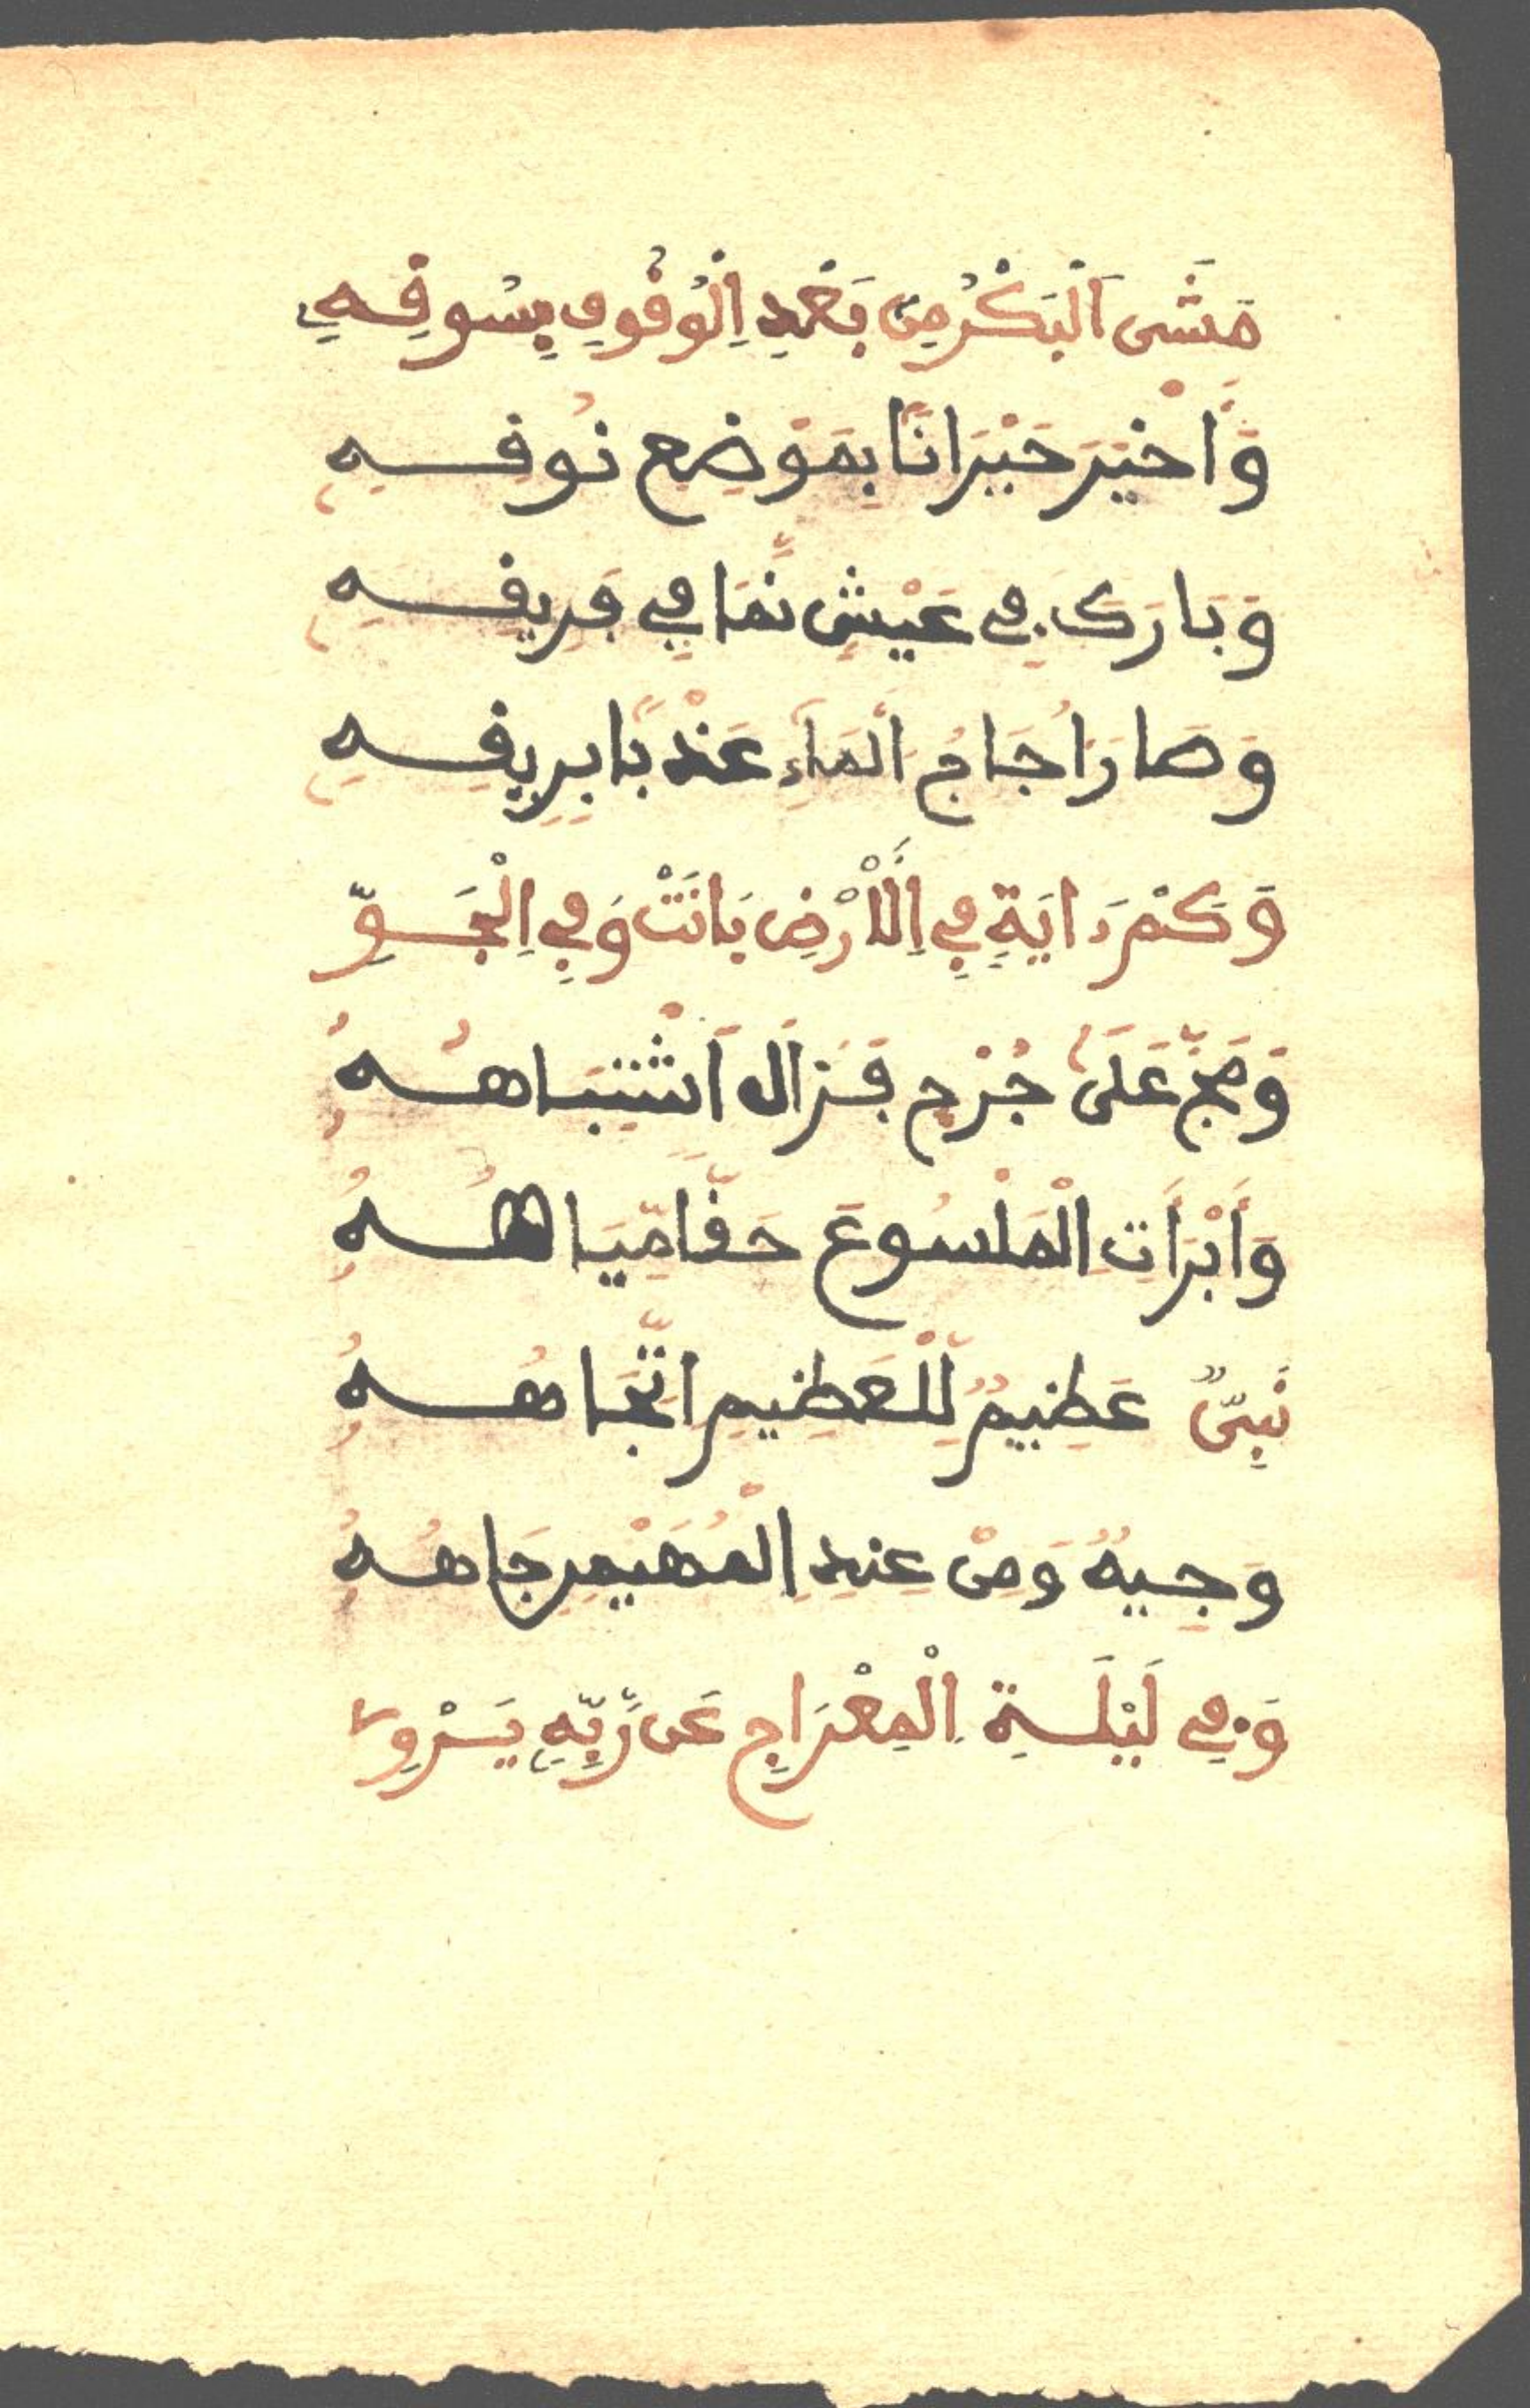 مَشَى اَلْبَكْرُ مِنْ بَعْدِ اِلْوُقُوفِ بِسُوقِهِ
وَأَخْبَرَ حَبْرَانًا بِمَوْضِعِ نُوقِهِ
وَبَارَكَ فِي عَيْشٍ نَّمَا فِي فَرِيقِهِ
وَصَارَ أُجَاجُ اَلْمَاءِ عَذْبًا بِرِيقِهِ
وَكَمْ ءَايَةٍ فِي اِلْأَرْضِ بَانَتْ وَفِي اِلْجَوِّ
وَمَجَّ عَلَى جُرْحٍ فَزَالَ اَشْتِبَاهُهُ
وَأَبْرَأَتِ اِلْمَلْسُوعَ حَقًّا مِّيَاهُهُ
نَبِيٌّ عَظِيمٌ لِّلْعَظِيمِ اِتِّجَاهُهُ
وَجِيهٌ وَمِنْ عِندِ اِلْمُهَيْمِنِ جَاهُهُ
وَفِي لَيْلَةِ اِلْمِعْرَاجِ عَن رَّبِّهِ يَرْوِي